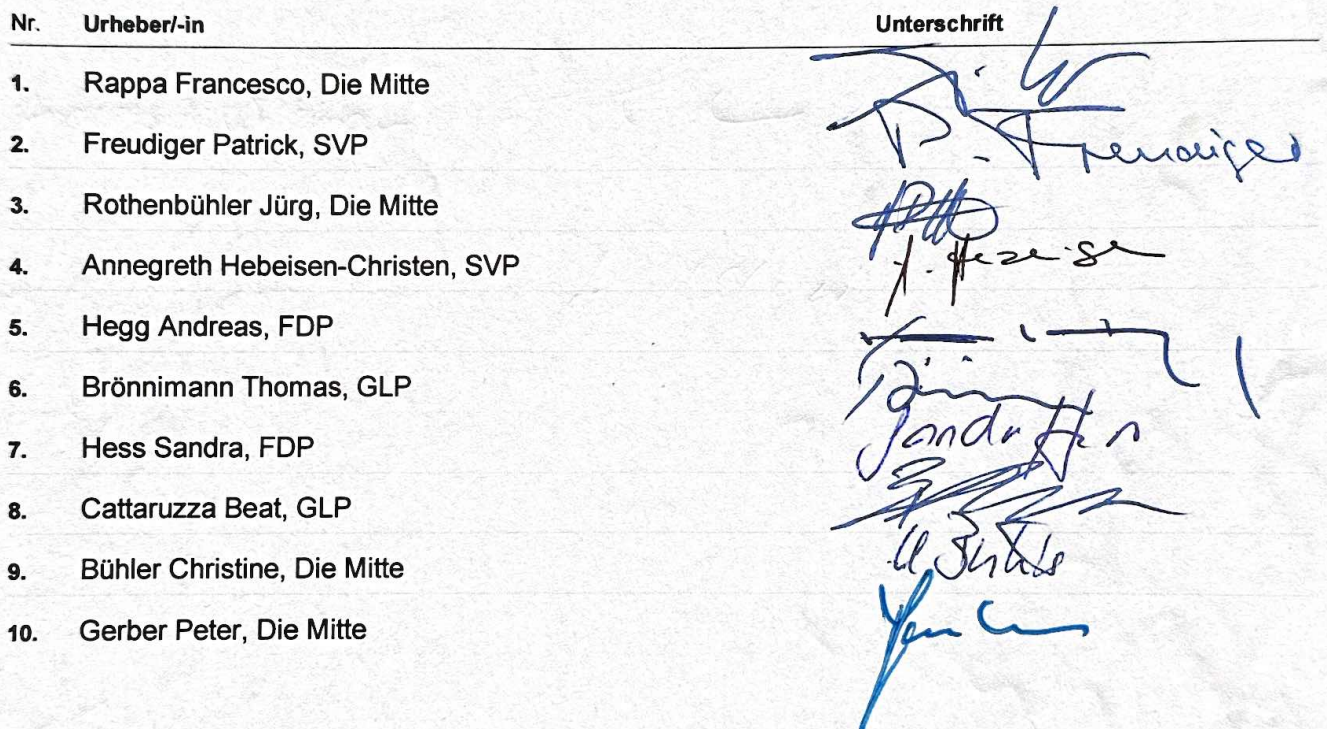 Nr. Urheber/-in Unterschrift
1. Rappa Francesco, Die Mitte
2. Freudiger Patrick, SVP P. Freudiger
3. Rothenbühler Jürg, Die Mitte
4. Annegreth Hebeisen-Christen, SVP
5. Hegg Andreas, FDP
6. Brönnimann Thomas, GLP
7. Hess Sandra, FDP Sandra Hess
8. Cattaruzza Beat, GLP
9. Bühler Christine, Die Mitte
10. Gerber Peter, Die Mitte